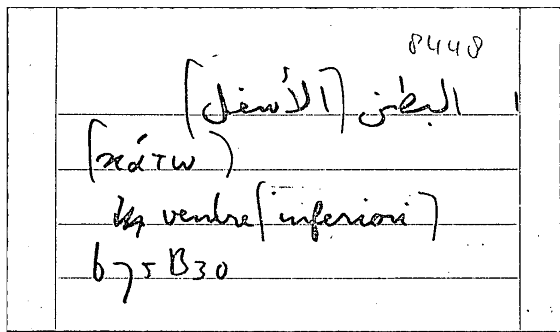 8448
ا البطن (الأسفل)
(κάτω)
ventre (inferiori)
675 B30